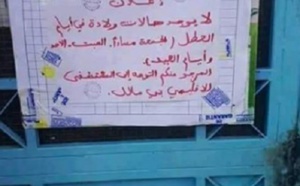 إعلان
لا يوجد حالات ولادة في أيام
العطل (الجمعة مساءً. السبت. الأحد
وأيام العيد)
المرجو منكم التوجه إلى المستشفى
الإقليمي بني ملال.
GARANTIE